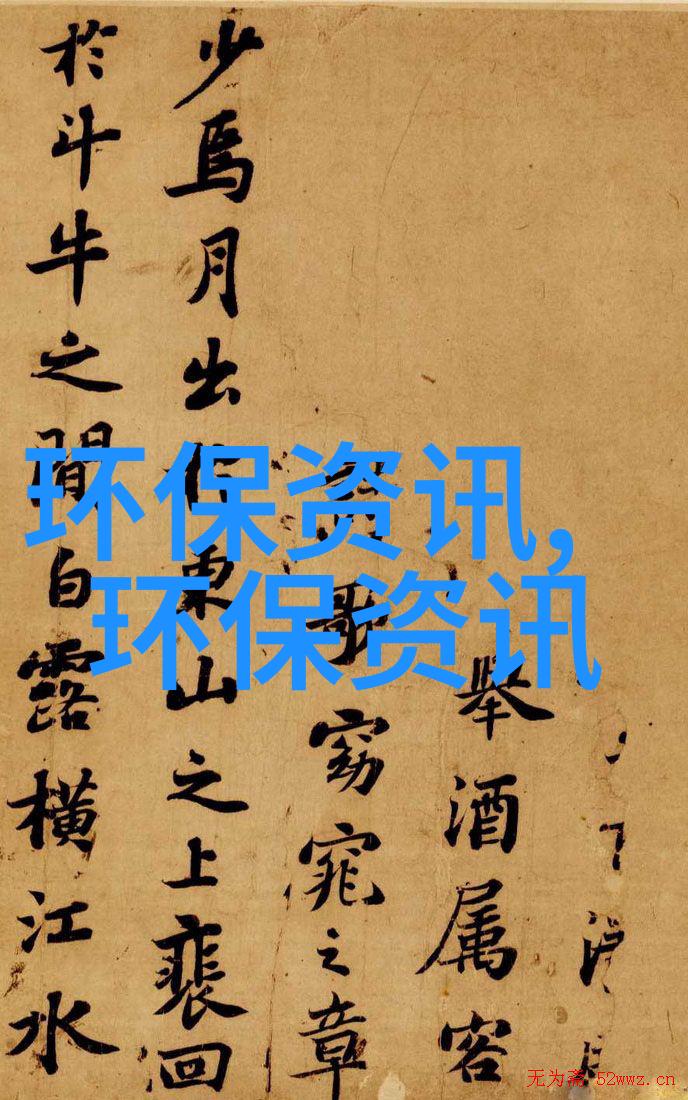 环保资讯,
环保资讯
舉酒属客
歌窈窕之章
少焉月出東山之上裵回
於斗牛之間白露橫江水
无为斋 52wwz.cn